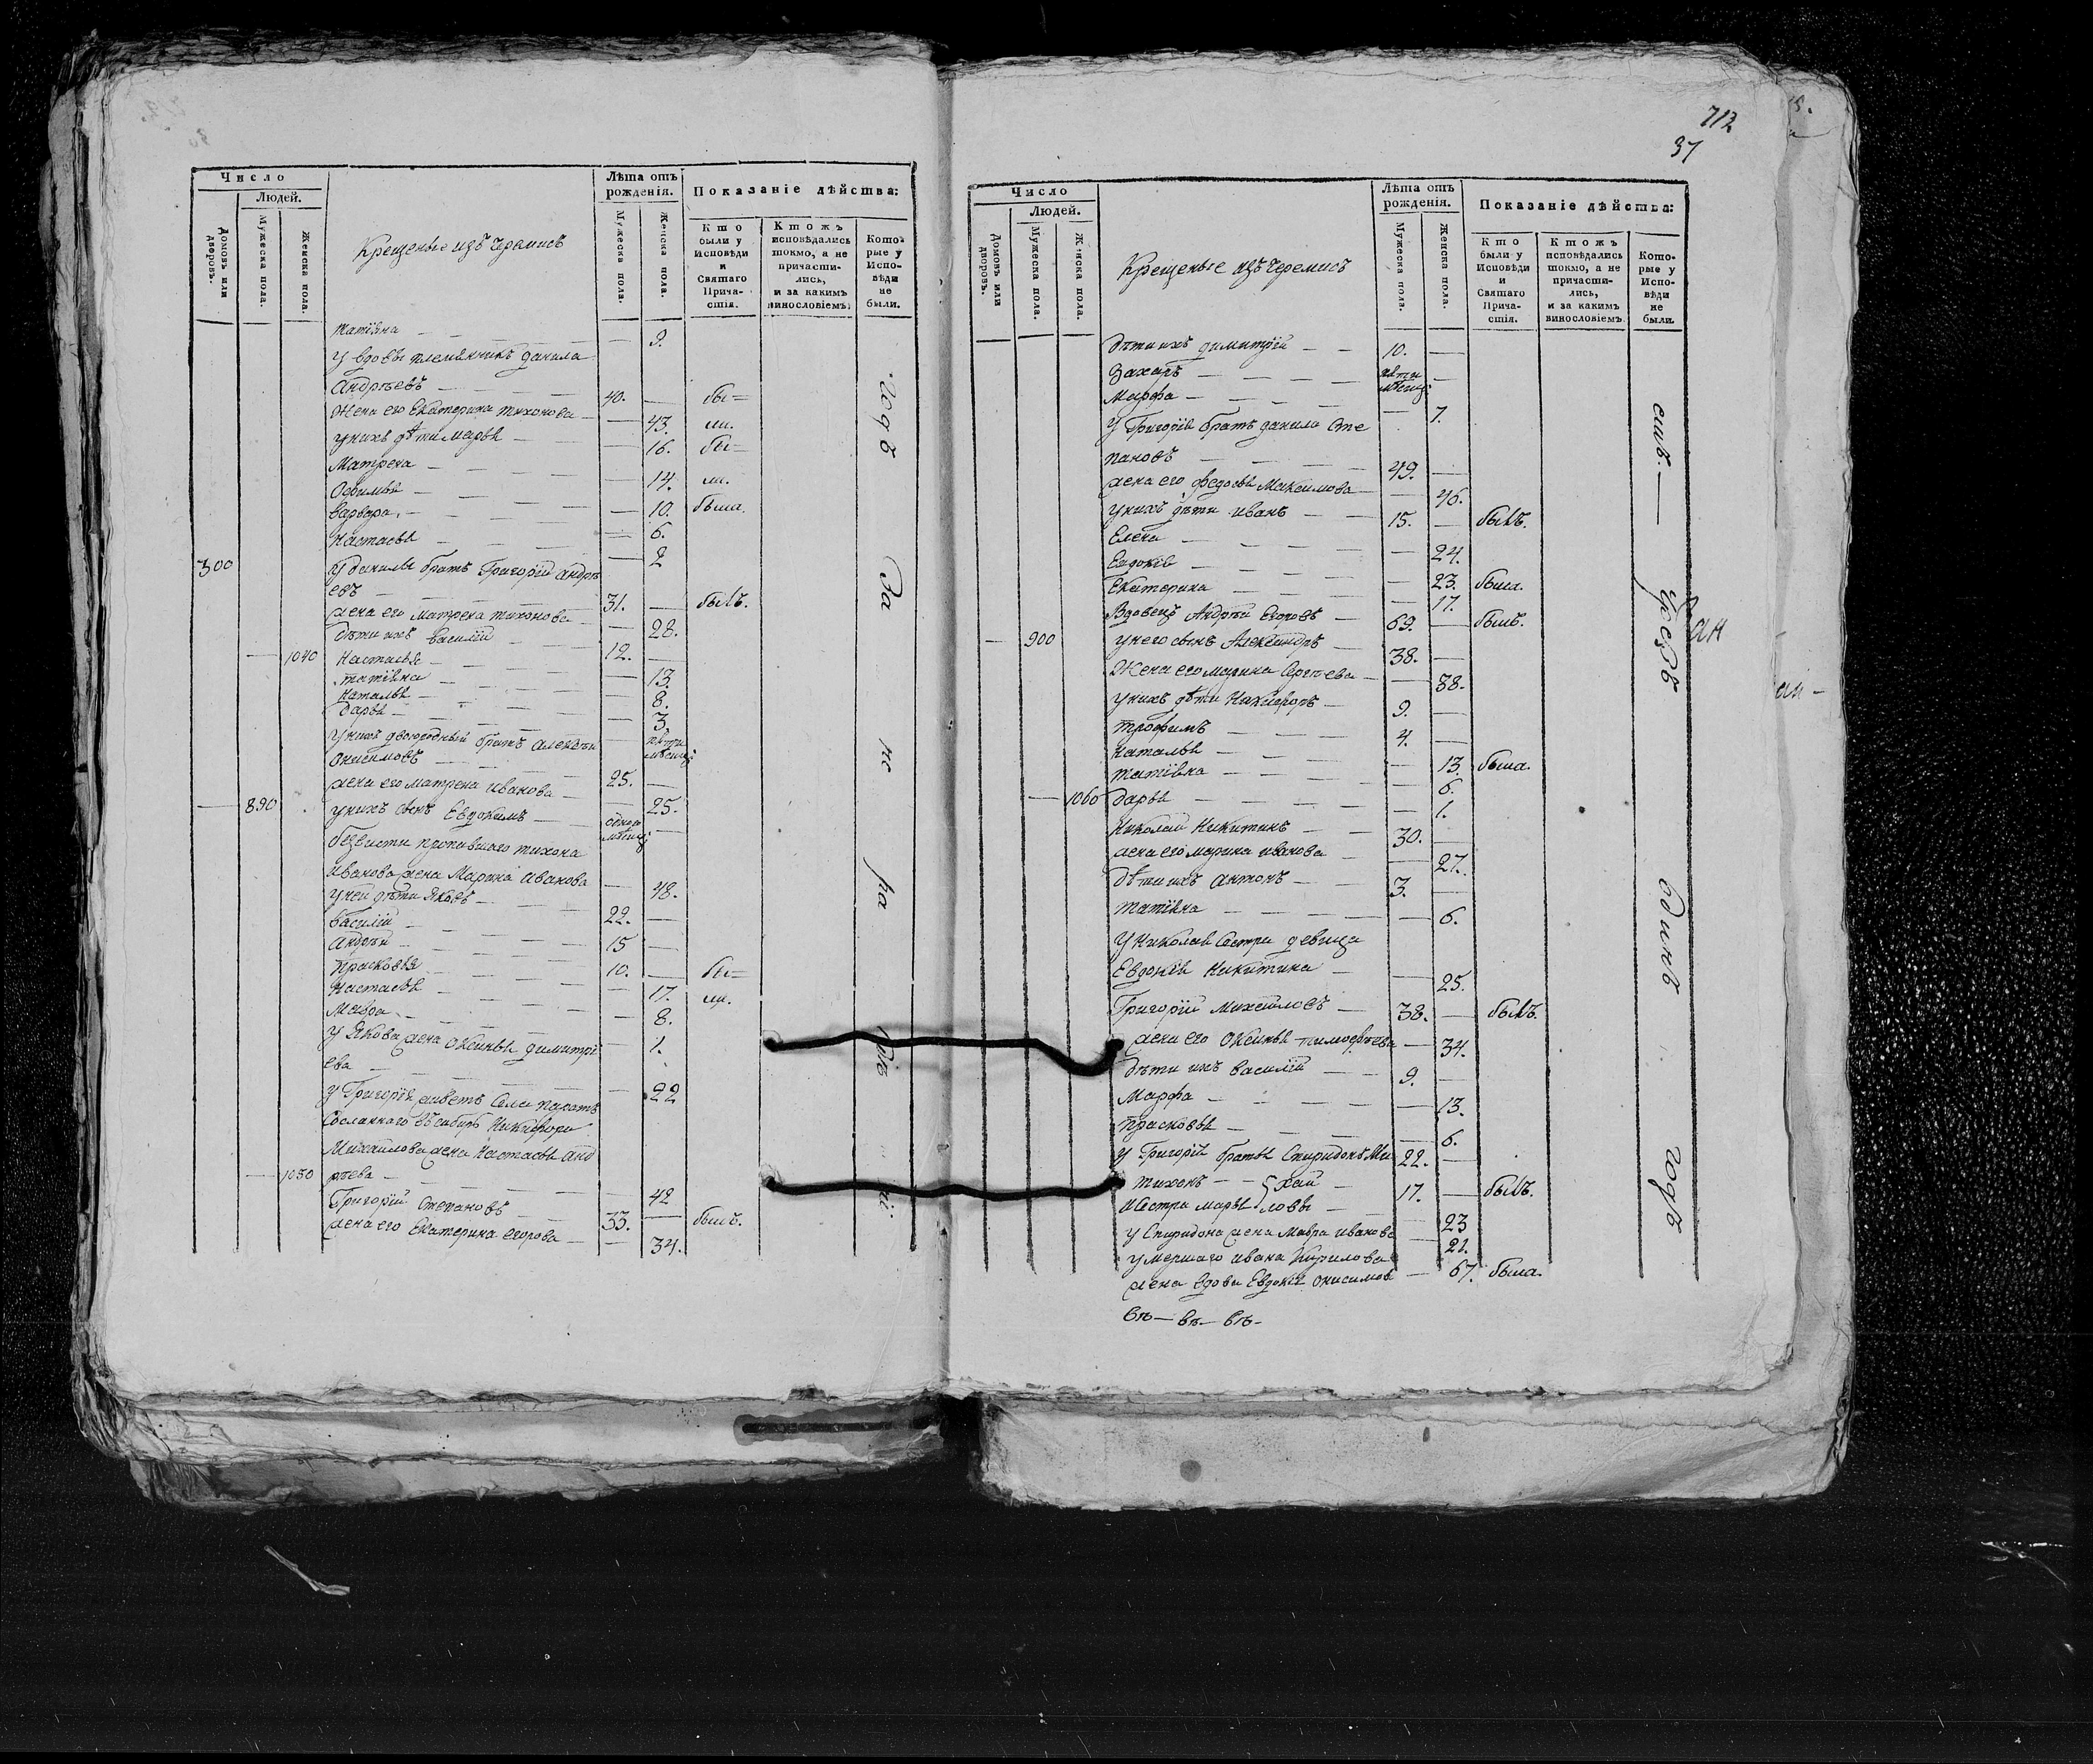 Число
Людей.
Домовъ или дворовъ.
Мужеска пола.
Женска пола.
Крещеные изъ черемисъ
Лѣта отъ рожденія.
Мужеска пола.
Женска пола.
Показаніе дѣйства:
Кто были у Исповѣди и Святаго Причастія.
Ктожъ исповѣдались токмо, а не причастились, и за какимъ винословіемъ.
Которые у Исповѣди не были.
Татіяна — 9.
У вдовы племянникъ данила
Андрѣевъ — 40. — бы=
Жена его Екатерина тихонова — 43. ли.
у нихъ дѣти марья — 16. бы=
Матрена — 14. ли.
Офимья — 10. была.
варвара. — 6.
Настасья — 2
300 У данилы братъ Григорій андрѣ
евъ — 31. — былъ.
жена его матрена тихонова — 28.
дѣти ихъ василій — 12. —
— 1040 Настасья — 13.
татіяна — 8.
Наталья — 3.
дарья — пяти мѣсяц:
У нихъ двоюродный братъ алексѣй
Онисимовъ — 25. —
жена его матрена иванова — 25.
— 890 у нихъ сынъ Евдокимъ — одного мѣсяц: —
безвѣсти пропавшаго тихона
иванова жена Марина иванова — 48.
у ней дѣти Яковъ — 22. —
василій — 15 —
андрѣй — 10. — бы=
Прасковья — 17. ли.
Настасья — 8.
Мавра — 1.
У Якова жена Оксинья димитрі
ева — 22
у Григорія живетъ
Сосланнаго въ сибирь Никифора
Михаилова жена Настасья анд
— 1050 рѣева — 42
Григорій Степановъ — 33. — былъ.
жена его Екатерина егорова — 34.
Года
За
не
ра
712
37
Число
Людей.
Домовъ или дворовъ.
Мужеска пола.
Женска пола.
Крещеные изъ черемисъ
Лѣта отъ рожденія.
Мужеска пола.
Женска пола.
Показаніе дѣйства:
Кто были у Исповѣди и Святаго Причастія.
Ктожъ исповѣдались токмо, а не причастились, и за какимъ винословіемъ
Которые у Исповѣди не были.
дѣти ихъ димитрій — 10. —
Захаръ — пяти мѣсяц: —
Марфа — 7.
У Григорія братъ данила Сте
пановъ — 49. —
жена его федосья Максимова — 46.
у нихъ дѣти иванъ — 15. — былъ.
Елена — 24.
Евдокія — 23. была.
Екатерина — 17.
Вдовецъ Андрѣй Егоровъ — 69. — былъ.
— 900 у него сынъ Александръ — 38. —
Жена его марина Сергѣева — 38.
у нихъ дѣти Никифоръ — 9. —
трофимъ — 4. —
наталья — 13. была.
татіяна — 6.
— 1060 дарья — 1.
Николай Никитинъ — 30. —
жена его марина иванова — 27.
дѣти ихъ антонъ — 3. —
татіяна — 6.
У Николая Сестра девица
Евдокія Никитина — 25.
Григорій Михайловъ — 38. — былъ.
жена его Оксинья тимофѣева — 34.
дѣти ихъ василій — 9. —
Марфа — 13.
прасковья — 6.
у Григорія братья Спиридонъ Ми 22. —
тихонъ — хай — 17. — былъ.
и Сестра марья ловы — 23
у Спиридона жена Мавра иванова — 21.
умершаго ивана Кирилова
жена вдова Евдокія Онисимов — 67. была.
Уѣздъ
одинъ
годъ